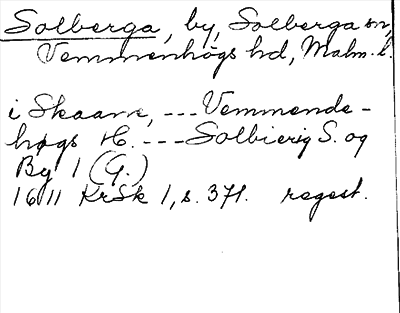 Solberga, by, Solberga sn,
Vemmenhögs hd, Malm. l.
i Skaane, --- Vemmende-
høgs H. --- Solbierig S. og
By 1 (G.)
1611 KrSk 1, s. 371. regest.